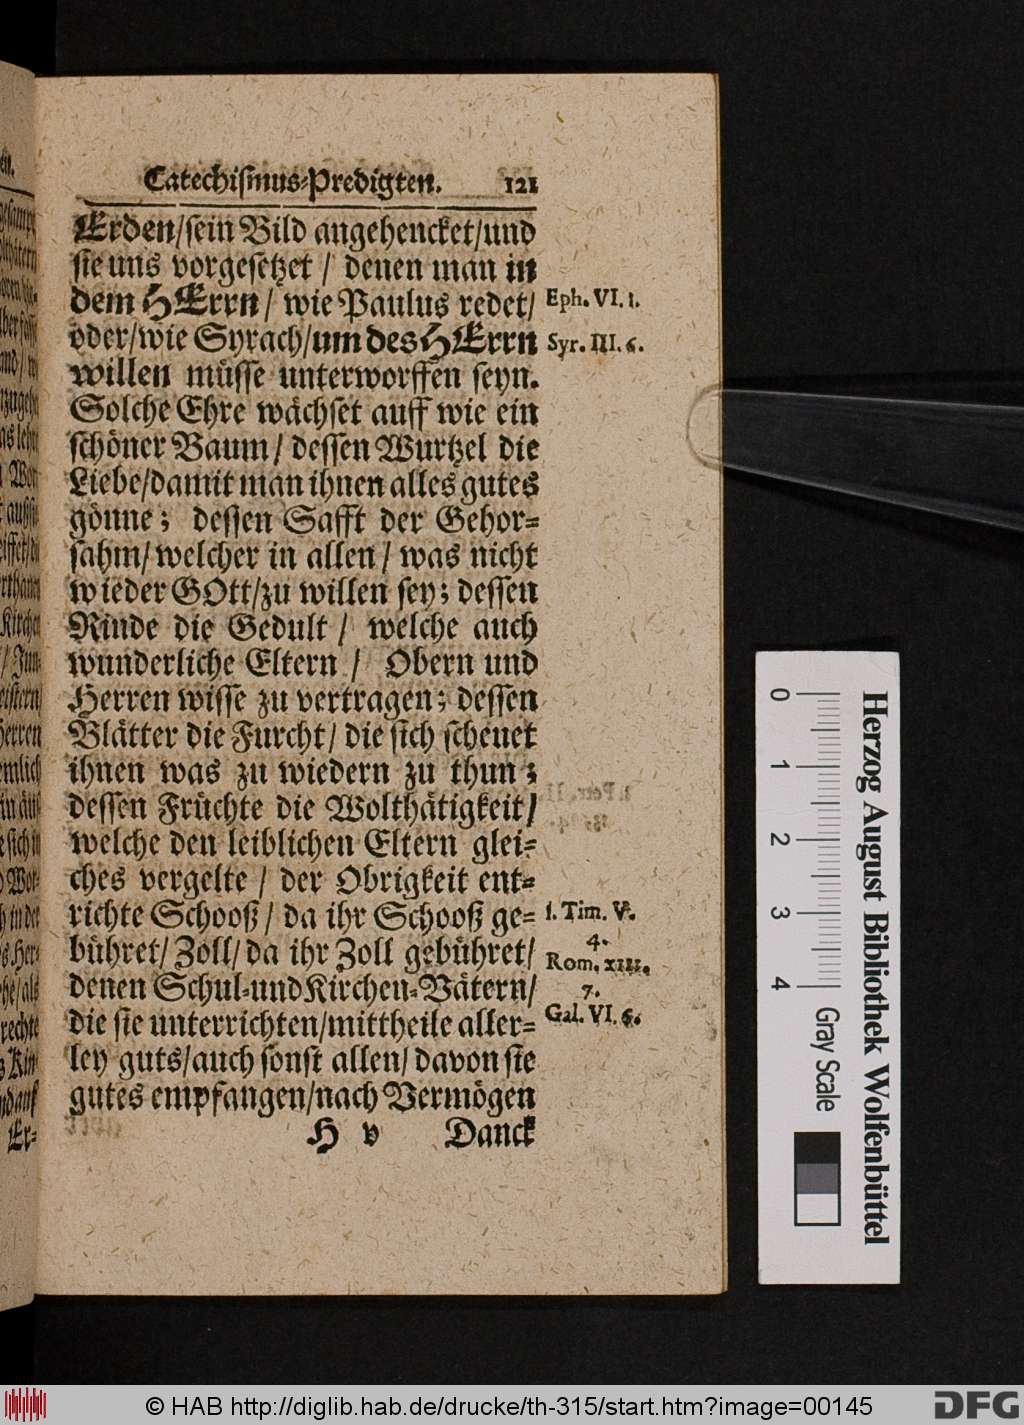 Catechismus-Predigten. 121
Erden/sein Bild angehencket/und
sie uns vorgesetzet / denen man in
dem HErrn / wie Paulus redet/ Eph. VI. 1.
oder/wie Syrach/um des HErrn Syr. III. 6.
willen müsse unterworffen seyn.
Solche Ehre wächset auff wie ein
schöner Baum / dessen Wurtzel die
Liebe/damit man ihnen alles gutes
gönne; dessen Safft der Gehor=
sahm/ welcher in allen / was nicht
wieder GOtt/zu willen sey; dessen
Rinde die Gedult / welche auch
wunderliche Eltern / Obern und
Herren wisse zu vertragen; dessen
Blätter die Furcht/ die sich scheuet
ihnen was zu wiedern zu thun;
dessen Früchte die Wolthätigkeit/
welche den leiblichen Eltern glei=
ches vergelte / der Obrigkeit ent=
richte Schooß / da ihr Schooß ge= 1. Tim. V.
4.
bühret/ Zoll/ da ihr Zoll gebühret/ Rom. XIII.
7.
denen Schul=und Kirchen=Vätern/
die sie unterrichten/mittheile aller= Gal. VI. 6.
ley guts/auch sonst allen/ davon sie
gutes empfangen/nach Vermögen
H v Danck
Er=
0 1 2 3 4
Gray Scale
Herzog August Bibliothek Wolfenbüttel
© HAB http://diglib.hab.de/drucke/th-315/start.htm?image=00145
DFG